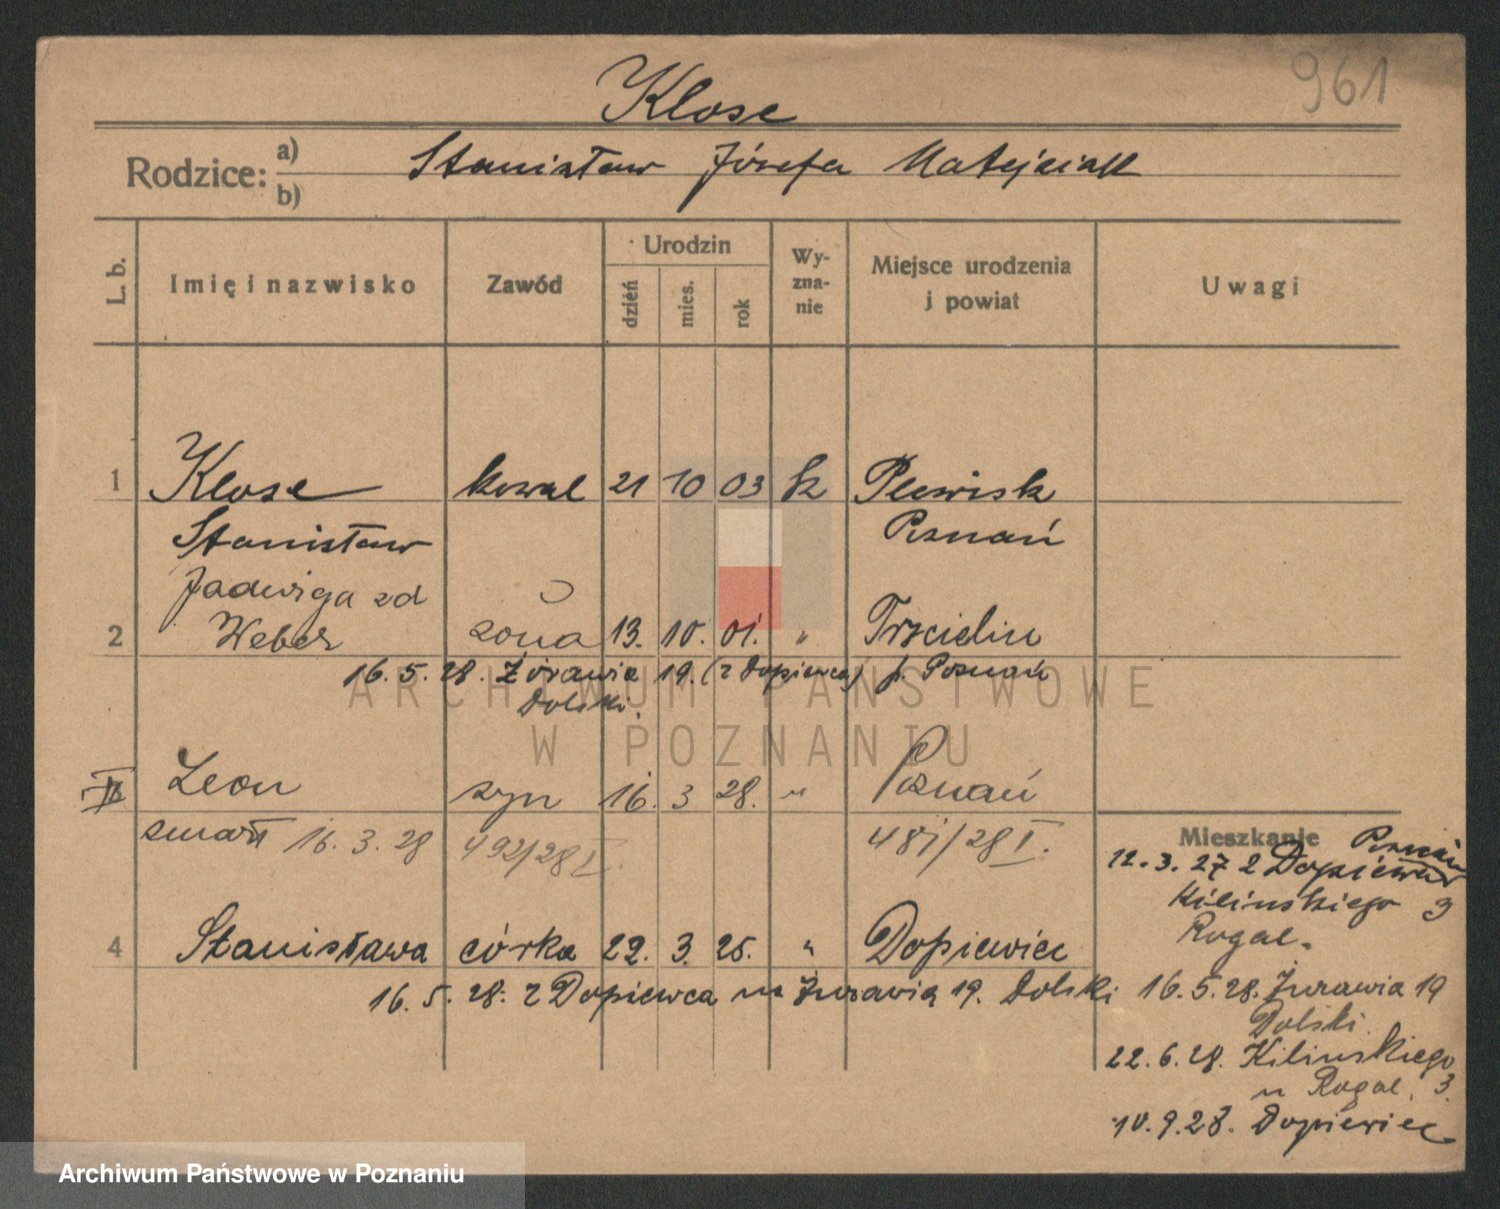 961
Klose
Rodzice: a) b) Stanisław Józefa Matejciak
L. b. Imię i nazwisko Zawód Urodzin dzień mies. rok Wyznanie Miejsce urodzenia i powiat Uwagi
1 Klose kowal 21 10 03 k Plewisk
Stanisław Poznań
Jadwiga zd
2 Weber żona 13. 10. 01. " Trzcielin
16. 5. 28. Żórawia 19. (z Dopiewca) p. Poznań
Dolski.
Leon syn 16. 3 28. " Poznań
zmarł 16. 3. 28 492/28 I. 481/28 I.
Mieszkanie
12. 3. 27 z Dopiewca
Kilinskiego 3
Rogal.
4 Stanisława córka 22. 3. 25. " Dopiewiec
16. 5. 28. z Dopiewca na Żurawią 19. Dolski
16. 5. 28. Żurawia 19
Dolski.
22. 6. 28. Kilinskiego
u Rogal. 3.
10. 9. 28. Dopiewiec
ARCHIWUM PAŃSTWOWE
W POZNANIU
Archiwum Państwowe w Poznaniu